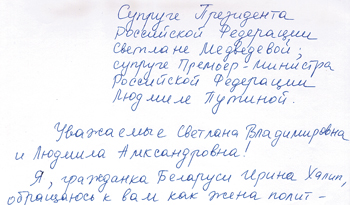 Супруге Президента
Российской Федерации
Светлане Медведевой;
супруге Премьер-министра
Российской Федерации
Людмиле Путиной.
Уважаемые Светлана Владимировна
и Людмила Александровна!
Я, гражданка Беларуси Ирина Халип,
обращаюсь к вам как жена полит-